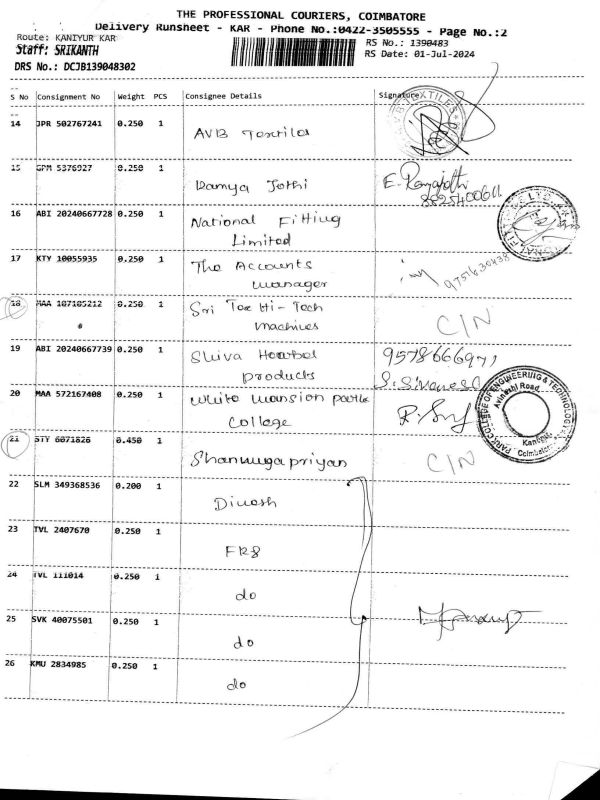 THE PROFESSIONAL COURIERS, COIMBATORE
Delivery Runsheet - KAR - Phone No.:0422-3505555 - Page No.:2
Route: KANIYUR KAR
RS No.: 1390483
Staff: SRIKANTH
RS Date: 01-Jul-2024
DRS No.: DCJB139048302
S No Consignment No Weight PCS Consignee Details Signature
14 JPR 502767241 0.250 1 AVB Textiles
15 GPM 5376927 0.250 1 Ramya Jothi E. Ramajothi
16 ABI 20240667728 0.250 1 National Fitting
Limited
17 KTY 10055935 0.250 1 The Accounts
manager
18 MAA 107105212 0.250 1 Sri Tex Hi-Tech C/N
machines
19 ABI 20240667739 0.250 1 Shiva Herbal
products
20 MAA 572167408 0.250 1 White mansion park
College
PARK COLLEGE OF ENGINEERING & TECHNOLOGY
Avinashi Road,
Coimbatore
21 STY 6071826 0.450 1 Shanmugapriyan C/N
22 SLM 349368536 0.200 1 Dinesh
23 TVL 2407670 0.250 1
24 TVL 111014 0.250 1 do
25 SVK 40075501 0.250 1 do
26 KMU 2834985 0.250 1 do